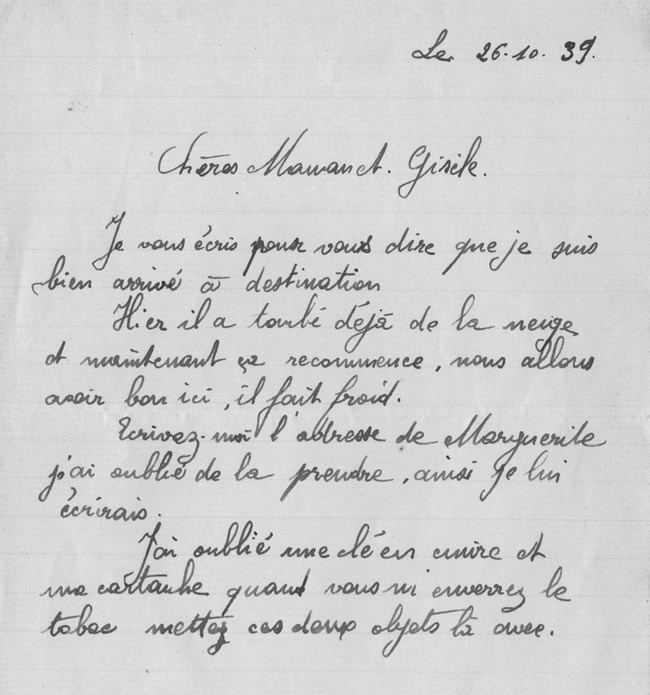 Le 26-10-39.
Chères Maman et. Gisèle.
Je vous écris pour vous dire que je suis
bien arrivé à destination
Hier il a tombé déjà de la neige
et maintenant ça recommence, nous allons
avoir bon ici, il fait froid.
Ecrivez-moi l'adresse de Marguerite
j'ai oublié de la prendre, ainsi je lui
écrirais.
J'ai oublié une clé en cuivre et
ma cartouche quand vous m'enverrez le
tabac mettez ces deux objets là avec.